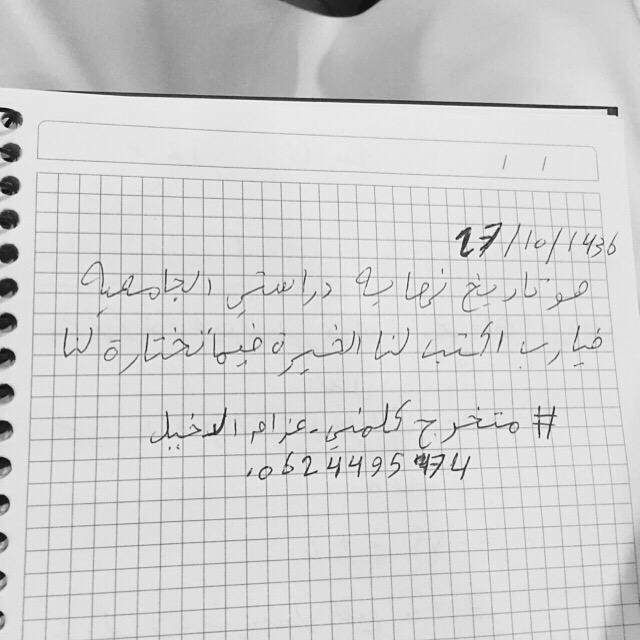 27/10/1436
هو تاريخ نهاية دراستي الجامعية
فيارب اكتب لنا الخيرة فيما تختارة لنا
# متخرج كلمني - عزام الدخيل
0624495474